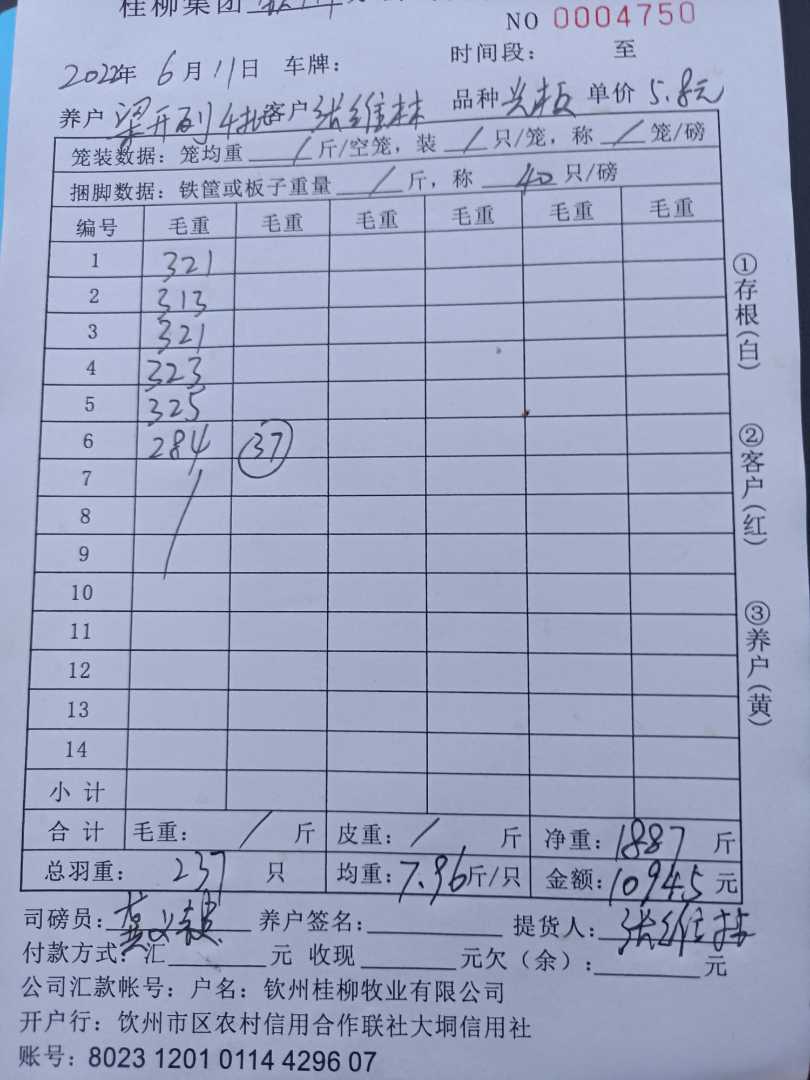 桂柳集团
NO 0004750
2022年 6月11日 车牌： 时间段： 至
养户 梁开列 4批 客户 张维林 品种 光板 单价 5.8元
笼装数据：笼均重 / 斤/空笼，装 / 只/笼，称 / 笼/磅
捆脚数据：铁筐或板子重量 / 斤，称 40 只/磅
编号 毛重 毛重 毛重 毛重 毛重 毛重
1 321
2 313
3 321
4 323
5 325
6 284 37
7
8
9
10
11
12
13
14
小计
合计 毛重： / 斤 皮重： / 斤 净重：1887 斤
总羽重： 237 只 均重：7.96斤/只 金额：10945元
司磅员： 养户签名： 提货人：张维林
付款方式：汇 元 收现 元欠（余）： 元
公司汇款帐号：户名：钦州桂柳牧业有限公司
开户行：饮州市区农村信用合作联社大垌信用社
账号：8023 1201 0114 4296 07
①存根（白）
②客户（红）
③养户（黄）